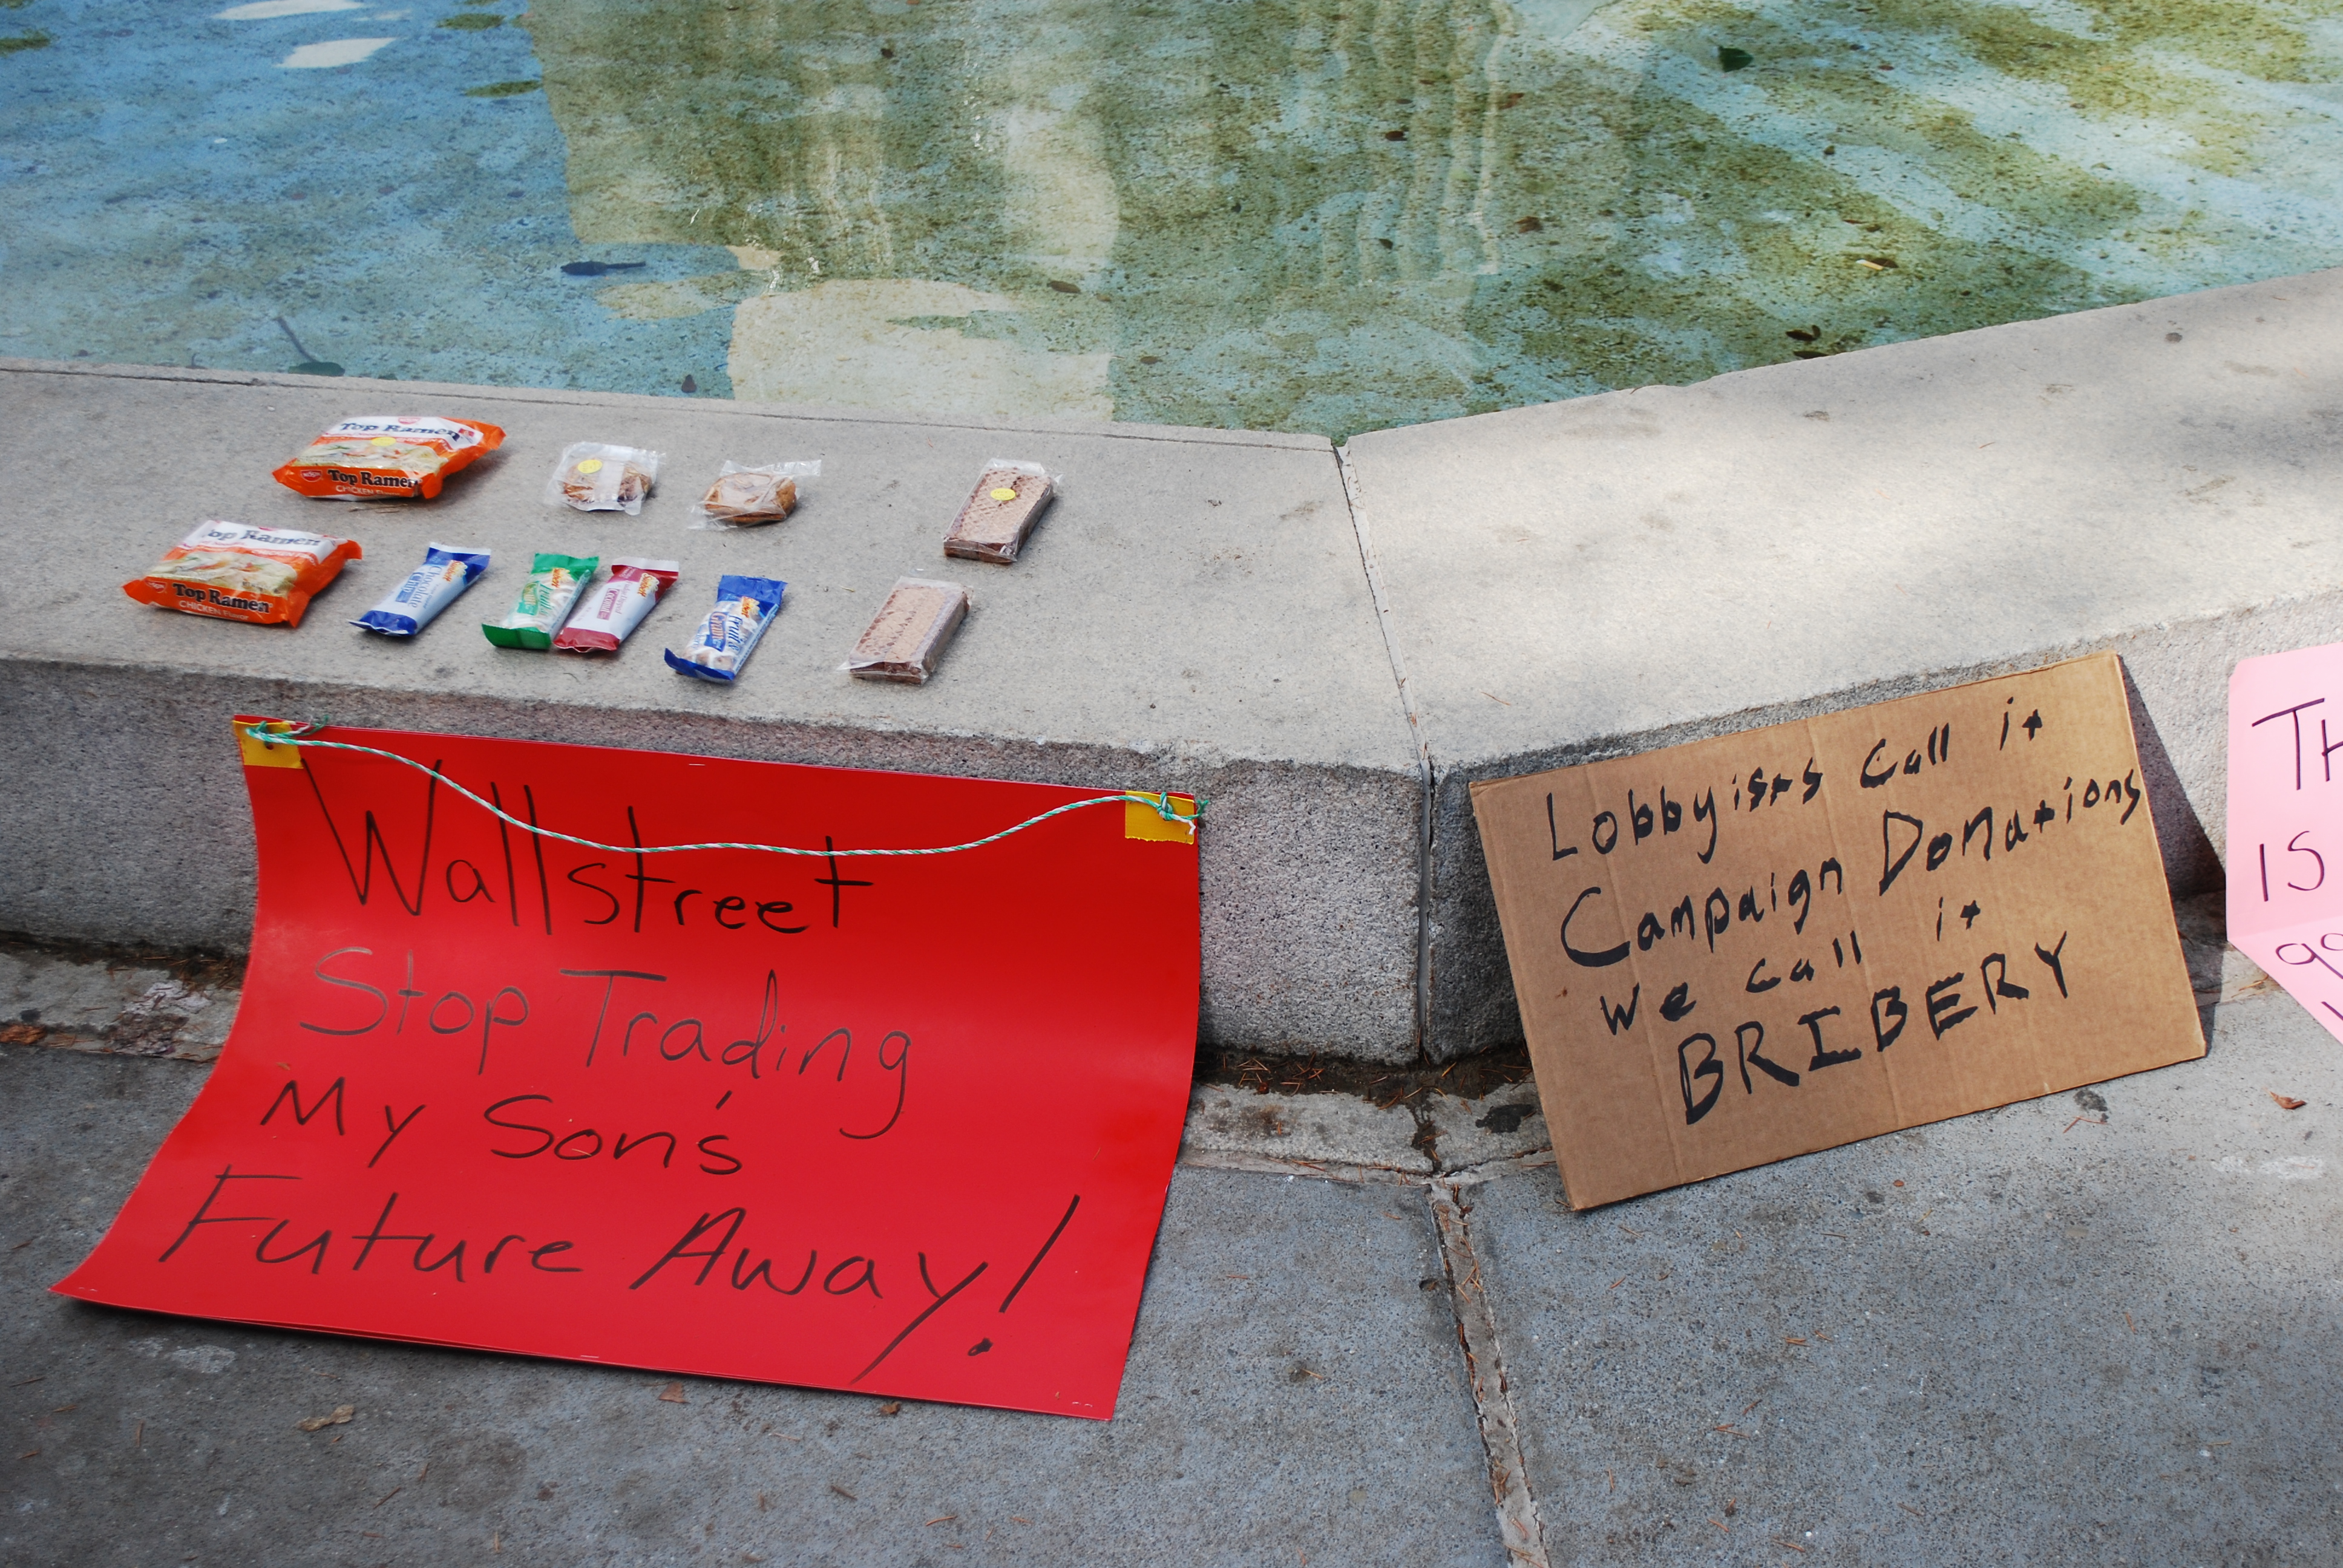 Top Ramen
Top Ramen
CHICKEN
Top Ramen
Top Ramen
CHICKEN Flavor
Wallstreet
Stop Trading
My Son's
Future Away!
Lobbyists Call it
Campaign Donations
we call it
BRIBERY
IS